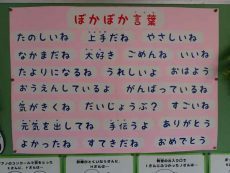 ぽかぽか言葉
たのしいね 上手だね やさしいね
なかまだね 大好き ごめんね いいね
たよりになるね うれしいよ おはよう
おうえんしているよ がんばっているね
気がきくね だいじょうぶ? すごいね
元気を出してね 手伝うよ ありがとう
よかったね すてきだね おめでとう